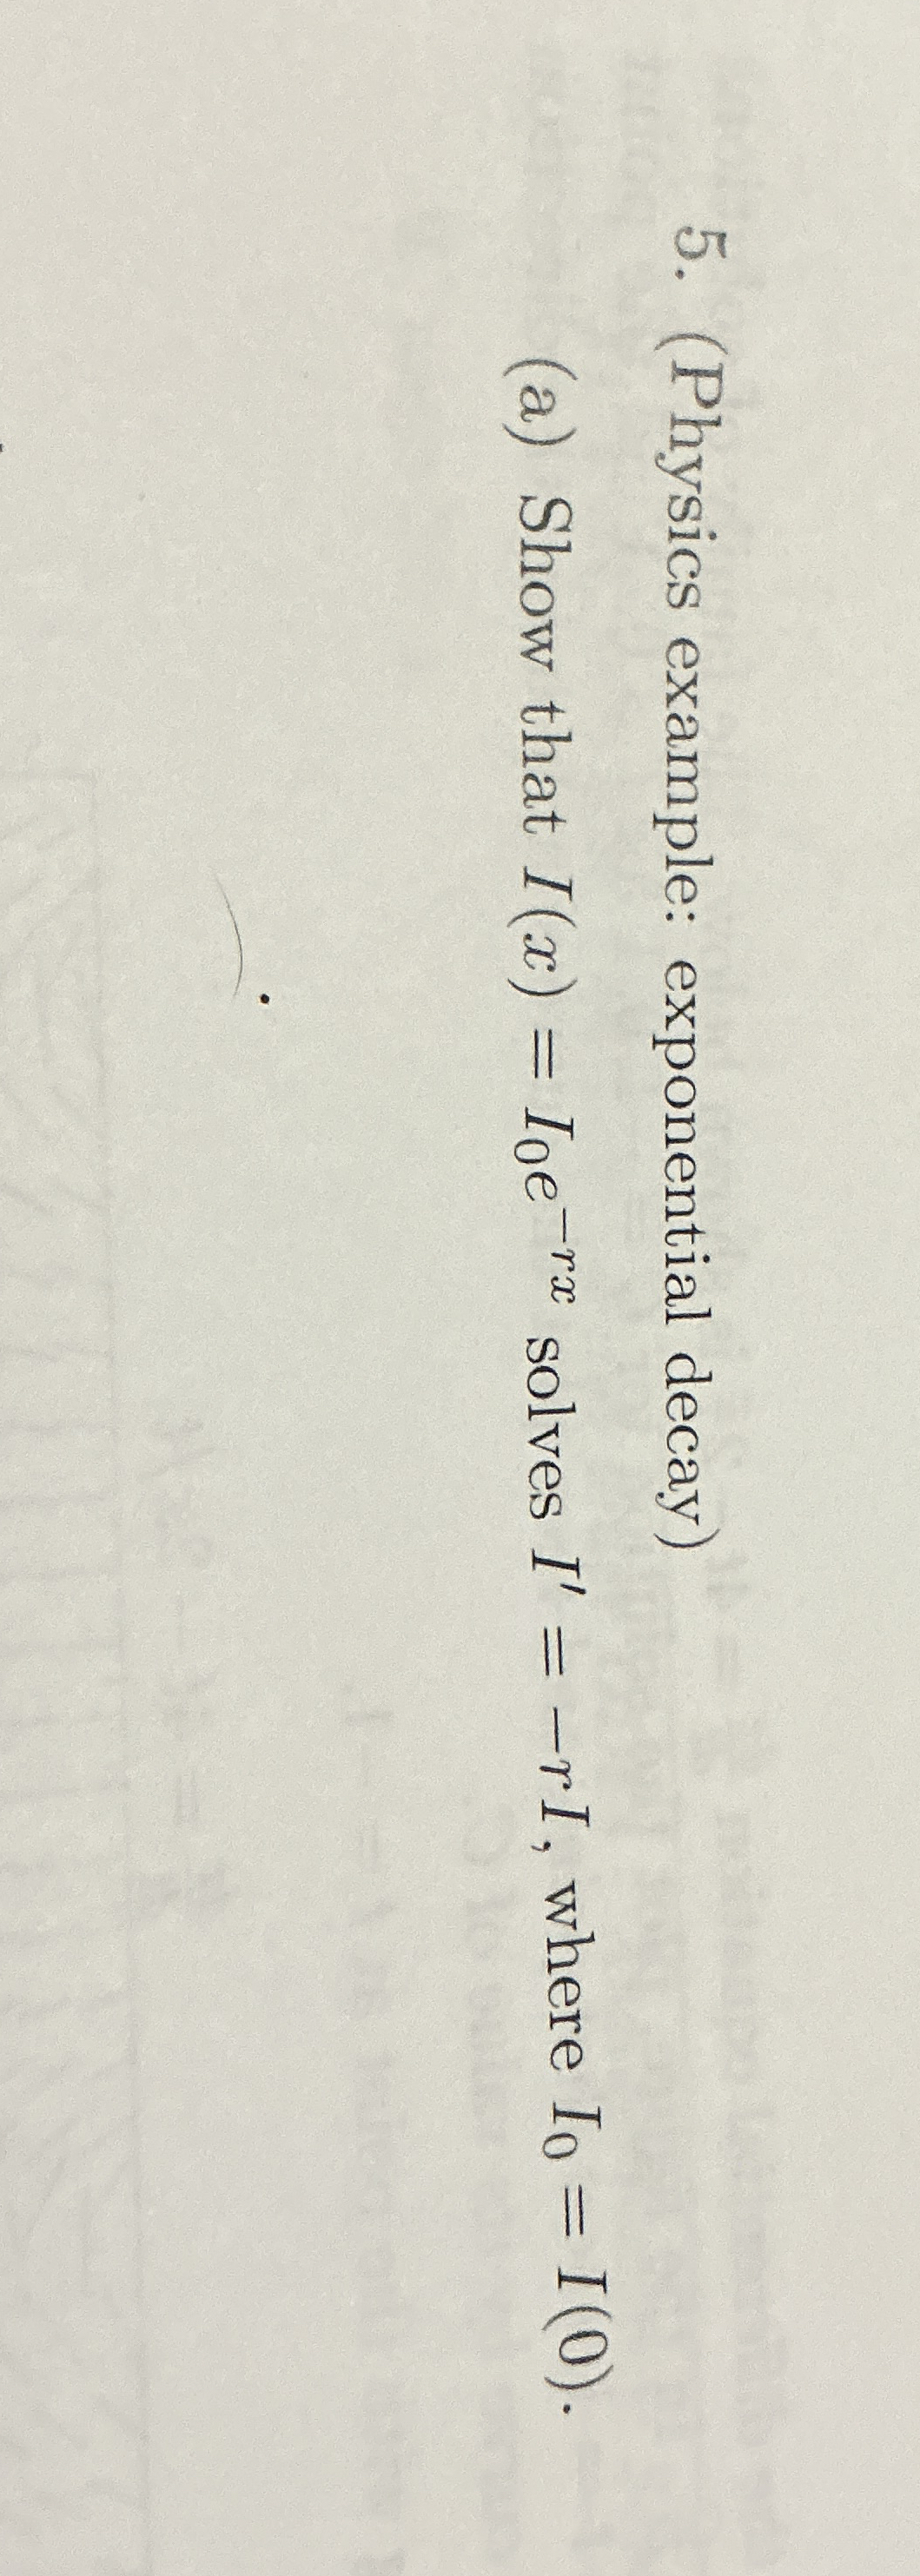 5. (Physics example: exponential decay)
(a) Show that I(x) = I₀e⁻ʳˣ solves I′ = −rI, where I₀ = I(0).